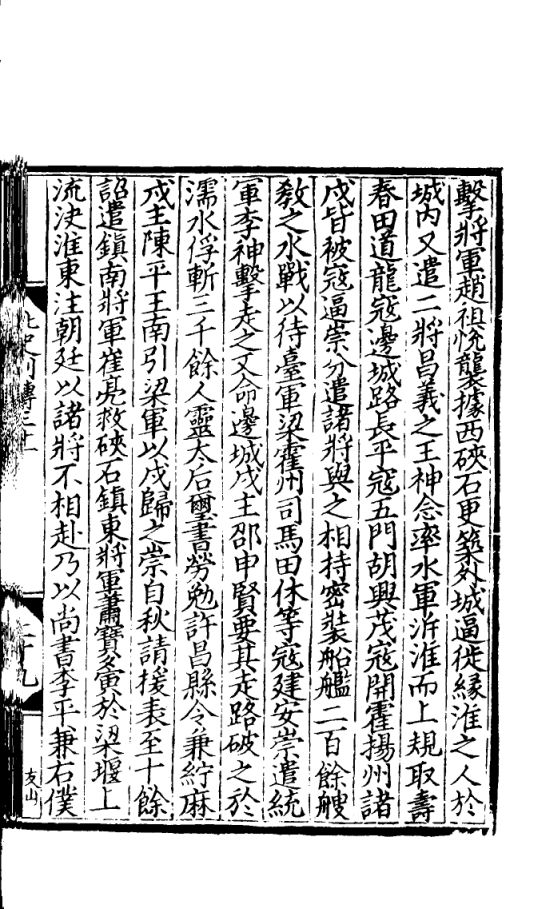 擊將軍趙祖恱襲據西硤石更築外城逼徙緣淮之人於
城內又遣二將昌義之王神念率水軍泝淮而上規取壽
春田道龍寇邊城路長平寇五門胡興茂寇開霍揚州諸
戍皆被寇逼崇分遣諸將與之相持密裝船艦二百餘艘
敎之水戰以待臺軍梁霍州司馬田休等寇建安崇遣統
軍李神擊走之又命邊城戍主邵申賢要其走路破之於
濡水俘斬三千餘人靈太后璽書勞勉許昌縣令兼紵麻
戍主陳平王南引梁軍以戍歸之崇自秋請援表至十餘
詔遣鎮南將軍崔亮救硤石鎮東將軍蕭寶夤於梁堰上
流決淮東注朝廷以諸將不相赴乃以尚書李平兼右僕
北史列傳三十一
二十九
友山